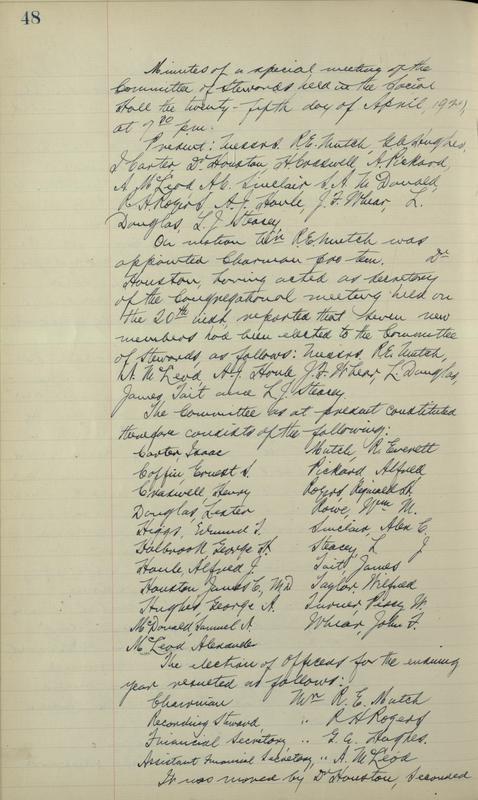 48
Minutes of a special meeting of the
Committee of Stewards held in the Social
Hall the twenty-fifth day of April, 1921,
at 7 30 p.m.
Present: Messrs. R.E. Mutch, G.A. Hughes,
I Carter, Dr Houston, H Craswell, A. Pickard,
A. McLeod A.C. Sinclair S.A. McDonald,
R H. Rogers, A.J. Houle, J.F. Whear, L.
Douglas, L.J. Stacey
On motion Mr R.E. Mutch was
appointed Chairman pro tem. Dr
Houston, having acted as secretary
of the Congregational meeting held on
the 20th inst, reported that seven new
members had been elected to the Committee
of Stewards as follows: Messrs, R.E. Mutch,
A. McLeod A.J. Houle J.F. Whear, L. Douglas,
James Tait and L J. Stacey.
The Committee as at present constituted
therefore consists of the following:
Carter Isaac Mutch, R. Everett
Coffin, Ernest S. Pickard Alfred
Craswell, Henry Rogers, Reginald H.
Douglas, Lester Rowe, Wm M.
Higgs, Edmund T. Sinclair, Alex C.
Holbrook, George H. Stacey, L J
Houle, Alfred J. Tait, James
Houston, James C, M.D Taylor, Wilfred
Hughes, George A. Turner, Percy W.
McDonald, Samuel A. Whear, John F.
McLeod Alexander
The election of officers for the ensuing
year resulted as follows:
Chairman Mr R. E. Mutch
Recording Steward " R H Rogers
Financial Secretary " G. A. Hughes.
Assistant Financial Secretary, " A. McLeod
It was moved by Dr Houston, seconded